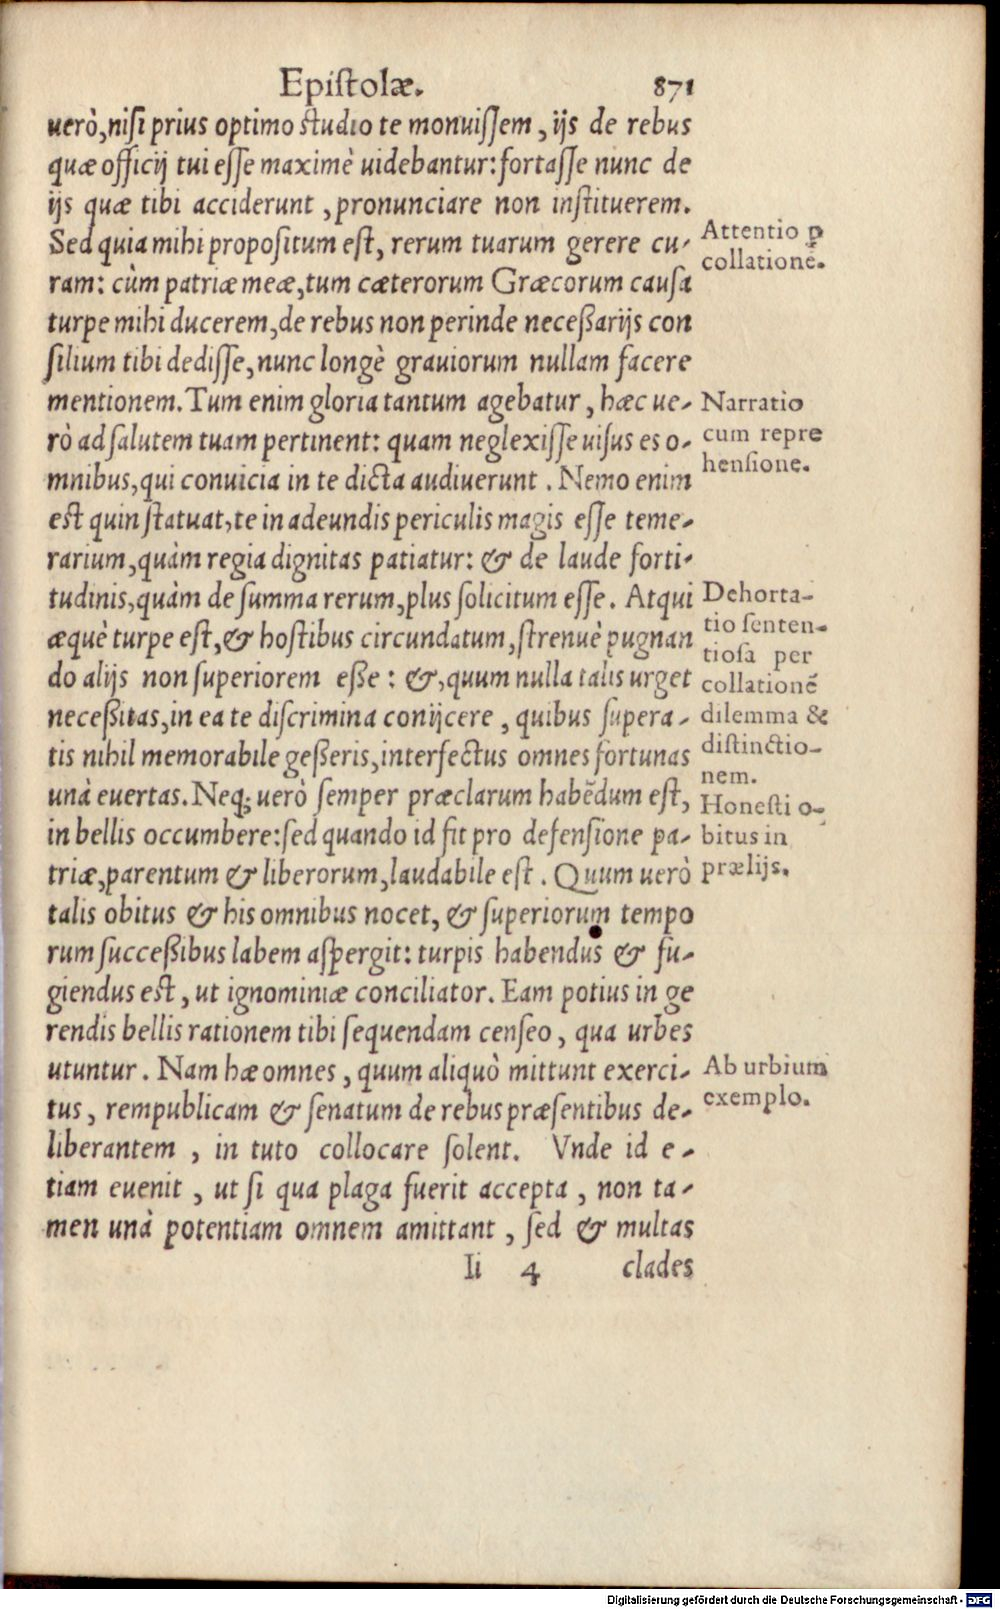 Epiſtolæ. 871
uerò, niſi prius optimo ſtudio te monuiſſem, ijs de rebus
quæ officij tui eſſe maximè uidebantur: fortaſſe nunc de
ijs quæ tibi acciderunt, pronunciare non inſtituerem.
Sed quia mihi propoſitum eſt, rerum tuarum gerere cu-
ram: cùm patriæ meæ, tum cæterorum Græcorum cauſa
turpe mihi ducerem, de rebus non perinde neceßarijs con
ſilium tibi dediſſe, nunc longè grauiorum nullam facere
mentionem. Tum enim gloria tantum agebatur, hæc ue-
rò ad ſalutem tuam pertinent: quam neglexiſſe uiſus es o-
mnibus, qui conuicia in te dicta audiuerunt. Nemo enim
eſt quin ſtatuat, te in adeundis periculis magis eſſe teme-
rarium, quàm regia dignitas patiatur: & de laude forti-
tudinis, quàm de ſumma rerum, plus ſolicitum eſſe. Atqui
æquè turpe eſt, & hoſtibus circundatum, ſtrenuè pugnan
do alijs non ſuperiorem eße: &, quum nulla talis urget
neceßitas, in ea te diſcrimina conijcere, quibus ſupera-
tis nihil memorabile geßeris, interfectus omnes fortunas
unà euertas. Neq; uerò ſemper præclarum habẽdum eſt,
in bellis occumbere: ſed quando id fit pro defenſione pa-
triæ, parentum & liberorum, laudabile eſt. Quum uerò
talis obitus & his omnibus nocet, & ſuperiorum tempo
rum ſucceßibus labem aſpergit: turpis habendus & fu-
giendus eſt, ut ignominiæ conciliator. Eam potius in ge
rendis bellis rationem tibi ſequendam cenſeo, qua urbes
utuntur. Nam hæ omnes, quum aliquò mittunt exerci-
tus, rempublicam & ſenatum de rebus præſentibus de-
liberantem, in tuto collocare ſolent. Vnde id e-
tiam euenit, ut ſi qua plaga fuerit accepta, non ta-
men unà potentiam omnem amittant, ſed & multas
Ii 4 clades
Attentio ꝑ
collationẽ.
Narratio
cum repre
henſione.
Dehorta-
tio ſenten-
tioſa per
collationẽ
dilemma &
diſtinctio-
nem.
Honeſti o-
bitus in
prælijs.
Ab urbium
exemplo.
Digitalisierung gefördert durch die Deutsche Forschungsgemeinschaft - DFG